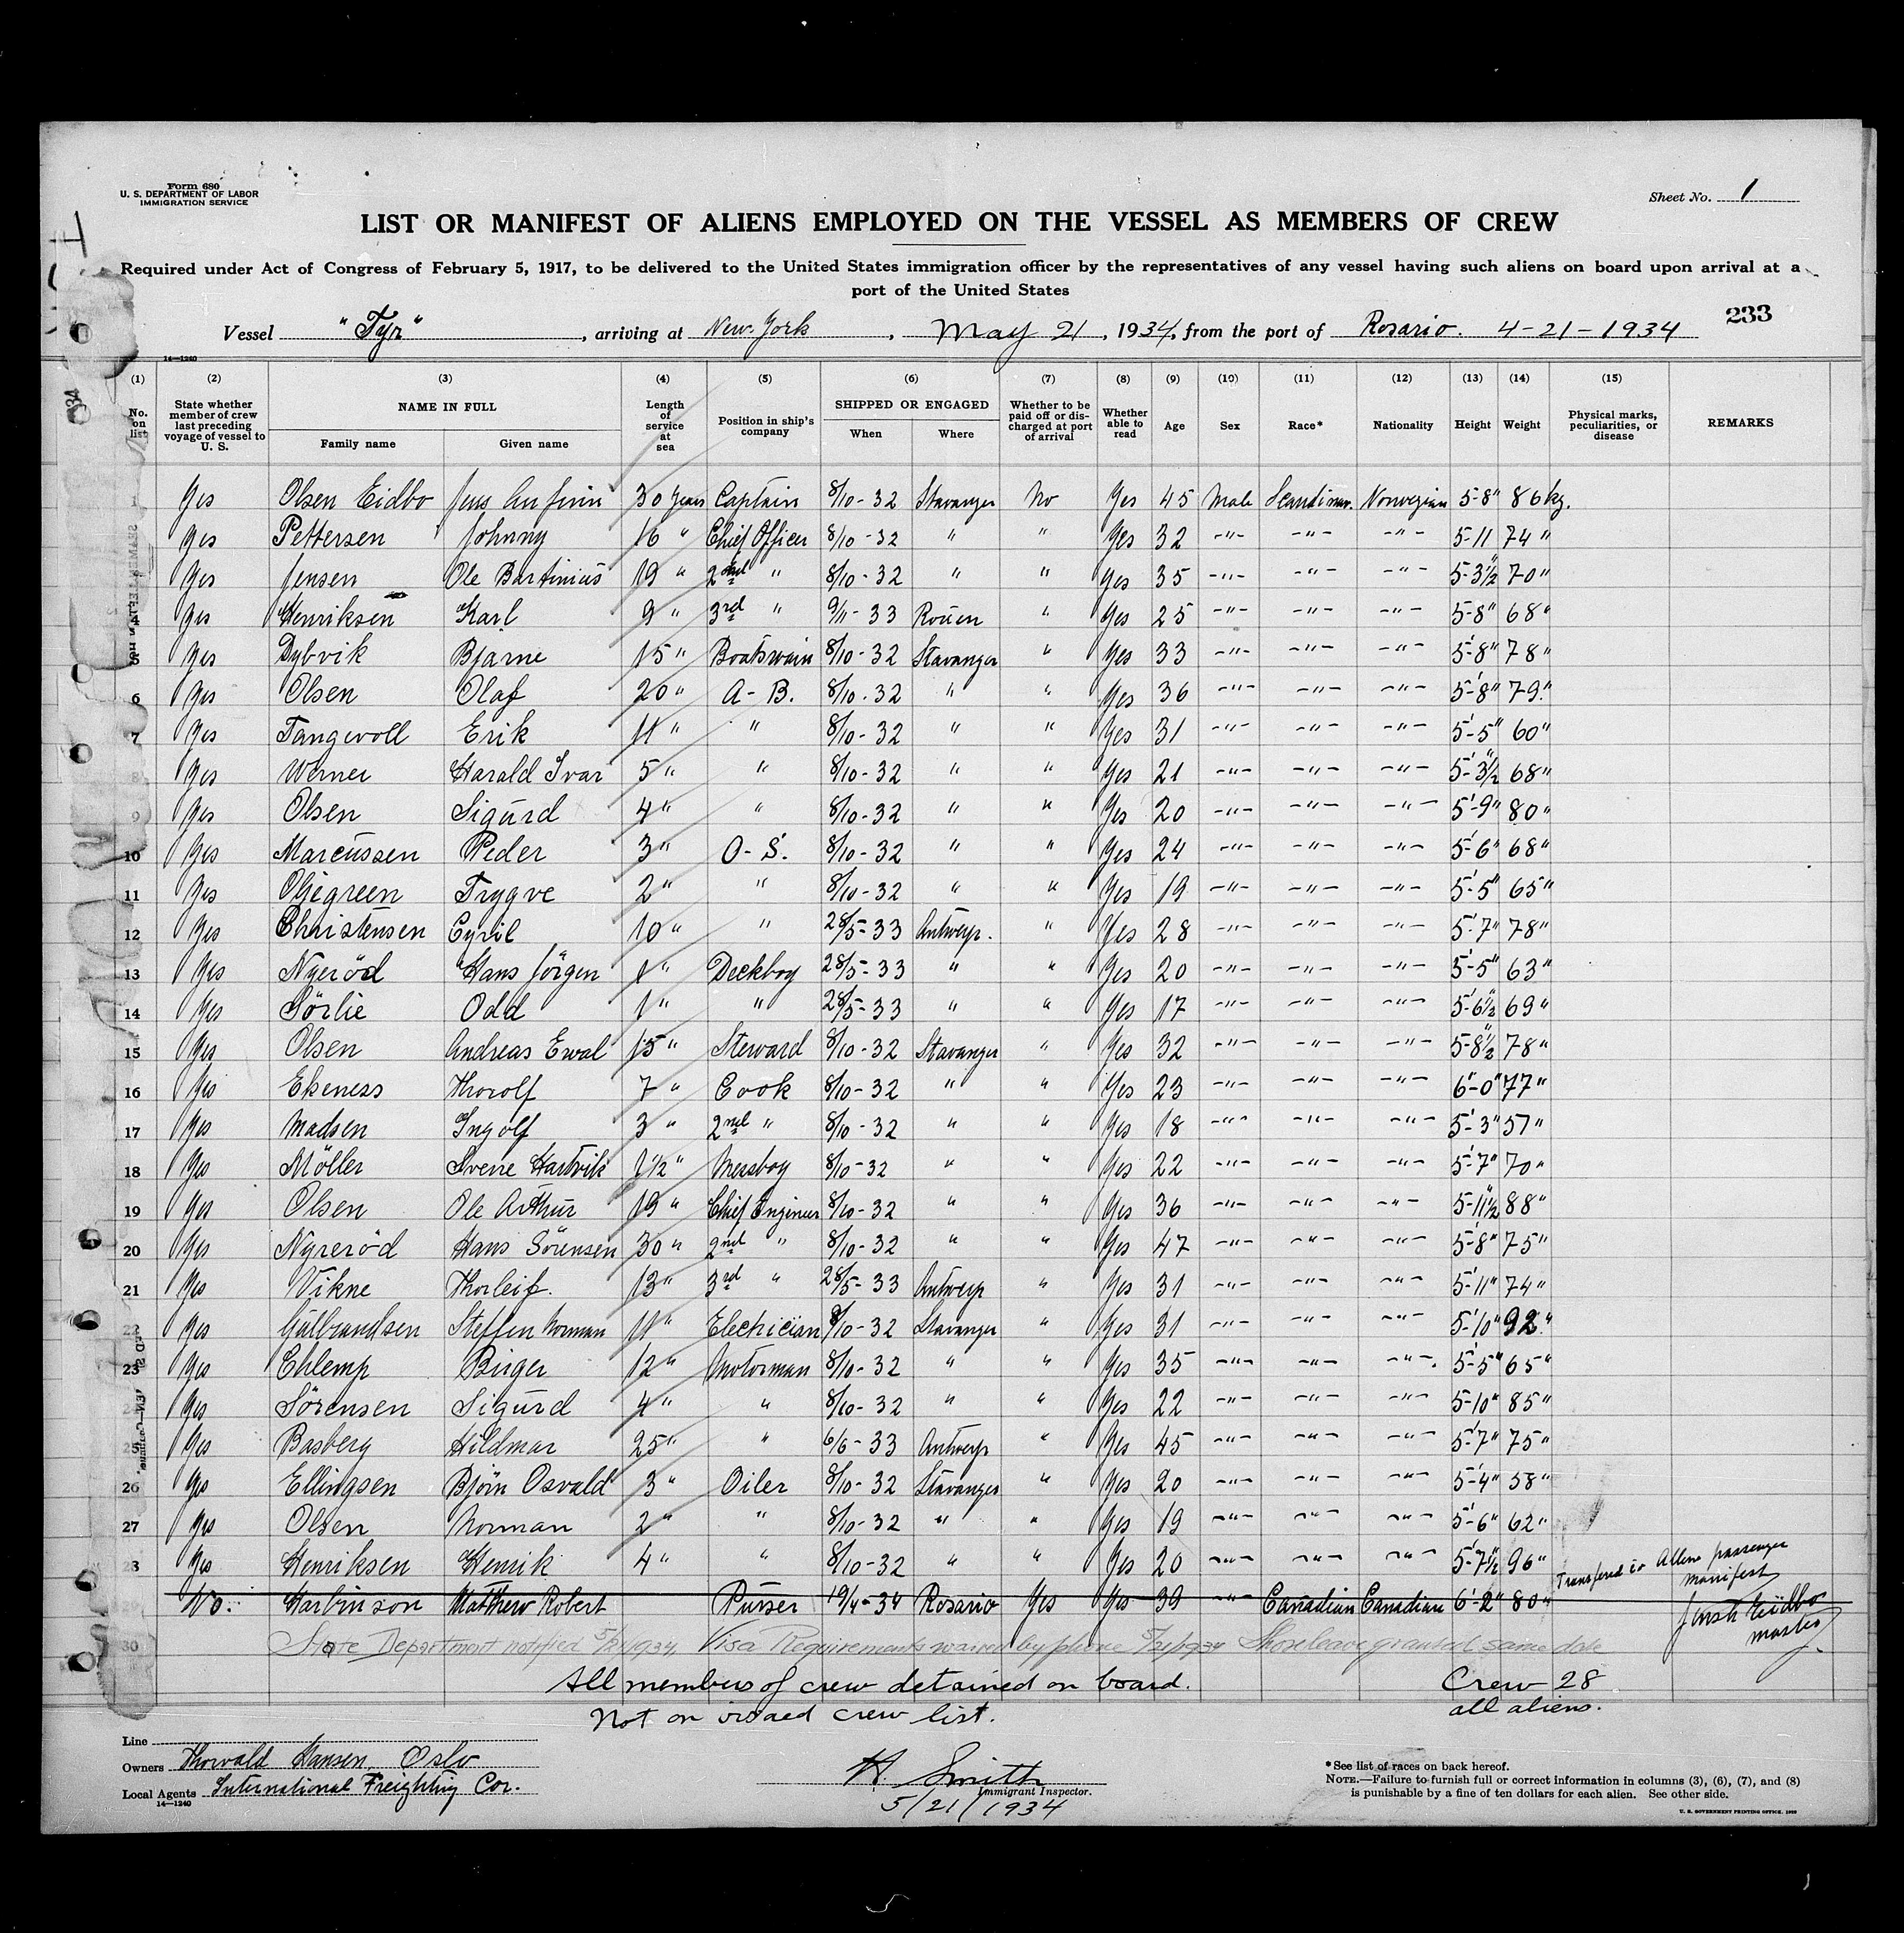 Form 680
U. S. DEPARTMENT OF LABOR
IMMIGRATION SERVICE
Sheet No. 1
LIST OR MANIFEST OF ALIENS EMPLOYED ON THE VESSEL AS MEMBERS OF CREW
Required under Act of Congress of February 5, 1917, to be delivered to the United States immigration officer by the representatives of any vessel having such aliens on board upon arrival at a
port of the United States
233
Vessel "Tyr", arriving at New-York, May 21, 1934, from the port of Rosario. 4-21-1934
14—1240
(1) (2) (3) (4) (5) (6) (7) (8) (9) (10) (11) (12) (13) (14) (15)
No. on list State whether member of crew last preceding voyage of vessel to U. S. NAME IN FULL Family name Given name Length of service at sea Position in ship's company SHIPPED OR ENGAGED When Where Whether to be paid off or discharged at port of arrival Whether able to read Age Sex Race* Nationality Height Weight Physical marks, peculiarities, or disease REMARKS
1 Yes Olsen Eidbo Jens 30 years Captain 8/10-32 Stavanger No Yes 45 Male Scandinav. Norwegian 5-8" 86 kg.
Yes Pettersen Johnny 16 " Chief Officer 8/10-32 " " Yes 32 -"- -"- -"- 5-11 74 "
Yes Jensen Ole Bartinius 19 " 2nd " 8/10-32 " " Yes 35 -"- -"- -"- 5-3½ 70 "
4 Yes Henriksen Karl 9 " 3rd " 9/11-33 Rouen " Yes 25 -"- -"- -"- 5-8" 68 "
5 Yes Dybvik Bjarne 15 " Boatswain 8/10-32 Stavanger " Yes 33 -"- -"- -"- 5'-8" 78 "
6 Yes Olsen Olaf 20 " A-B. 8/10-32 " " Yes 36 -"- -"- -"- 5'-8" 79 "
7 Yes Tangevoll Erik 11 " " 8/10-32 " " Yes 31 -"- -"- -"- 5'-5" 60 "
8 Yes Werner Harald Ivar 5 " " 8/10-32 " " Yes 21 -"- -"- -"- 5'-3½" 68 "
9 Yes Olsen Sigurd 4 " " 8/10-32 " " Yes 20 -"- -"- -"- 5'-9" 80 "
10 Yes Marcussen Peder 3 " O-S. 8/10-32 " " Yes 24 -"- -"- -"- 5'-6" 68 "
11 Yes Trygve 2 " " 8/10-32 " " Yes 19 -"- -"- -"- 5'-5" 65 "
12 Yes Christensen Cyril 10 " " 28/5-33 Antwerp. " Yes 28 -"- -"- -"- 5'-7" 78 "
13 Yes Nyeröd Hans Jörgen 1 " Deckboy 28/5-33 " " Yes 20 -"- -"- -"- 5'-5" 63 "
14 Yes Sörlie Odd 1 " " 28/5-33 " " Yes 17 -"- -"- -"- 5'-6½" 69 "
15 Yes Olsen Andreas Ewal 15 " Steward 8/10-32 Stavanger " Yes 32 -"- -"- -"- 5-8½" 78 "
16 Yes Ekeness Thorolf 7 " Cook 8/10-32 " " Yes 23 -"- -"- -"- 6'-0" 77 "
17 Yes Madsen Ingolf 3 " 2nd " 8/10-32 " " Yes 18 -"- -"- -"- 5'-3" 57 "
18 Yes Möller Sverre Hartvik 1½ " Messboy 8/10-32 " " Yes 22 -"- -"- -"- 5'-7" 70 "
19 Yes Olsen Ole Arthur 19 " Chief Engineer 8/10-32 " " Yes 36 -"- -"- -"- 5-11½" 88 "
20 Yes Nyreröd Hans Sörensen 30 " 2nd " 8/10-32 " " Yes 47 -"- -"- -"- 5'-8" 75 "
21 Yes Vikne Thorleif. 13 " 3rd " 28/5-33 Antwerp " Yes 31 -"- -"- -"- 5'-11" 74 "
22 Yes Gulbrandsen Steffen Norman 11 " Electrician 8/10-32 Stavanger " Yes 31 -"- -"- -"- 5'-10" 92 "
23 Yes Ehlemp Birger 12 " Motorman 8/10-32 " " Yes 35 -"- -"- -"- 5'-5" 65 "
Yes Sörensen Sigurd 4 " " 8/10-32 " " Yes 22 -"- -"- -"- 5-10" 85 "
25 Yes Basberg Hildmar 25 " " 6/6-33 Antwerp " Yes 45 -"- -"- -"- 5'-7" 75 "
26 Yes Ellingsen Björn Osvald 3 " Oiler 8/10-32 Stavanger " Yes 20 -"- -"- -"- 5'-4" 58 "
27 Yes Olsen Norman 2 " " 8/10-32 " " Yes 19 -"- -"- -"- 5'-6" 62 "
28 Yes Henriksen Henrik 4 " " 8/10-32 " " Yes 20 -"- -"- -"- 5'-7½" 96 "
Transfered to Allien passenger
manifest
29 No. Harbinson Matthew Robert Purser 19/4-34 Rosario Yes Yes 39 -"- Canadian Canadian 6'-2" 80 "
Eidbo
master
30 State Department notified 5/21/1934, Visa Requirements waived by phone 5/21/1934 Shore leave granted same date
All members of crew detained on board.
Crew 28
Not on visaed crew list.
all aliens.
Line
Owners Thorvald Hansen Oslo
Local Agents International Freighting Cor.
14—1240
H. Smith
Immigrant Inspector.
5/21/1934
*See list of races on back hereof.
NOTE.—Failure to furnish full or correct information in columns (3), (6), (7), and (8)
is punishable by a fine of ten dollars for each alien. See other side.
U. S. GOVERNMENT PRINTING OFFICE